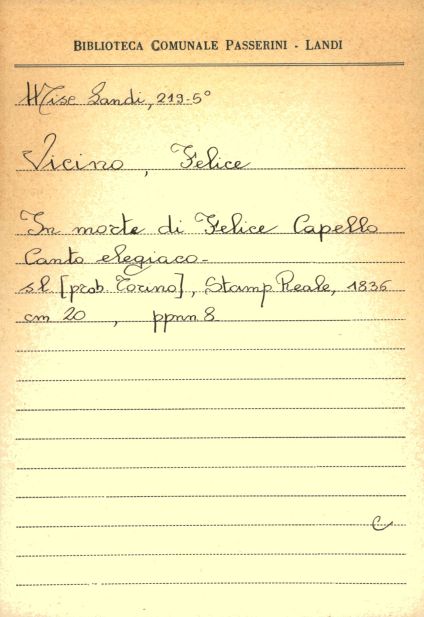 BIBLIOTECA COMUNALE PASSERINI - LANDI
Misc Landi, 219-5°
Vicino, Felice
In morte di Felice Capello
Canto elegiaco-
sl [prob. Torino], Stamp Reale, 1836
cm 20, ppnn 8
C